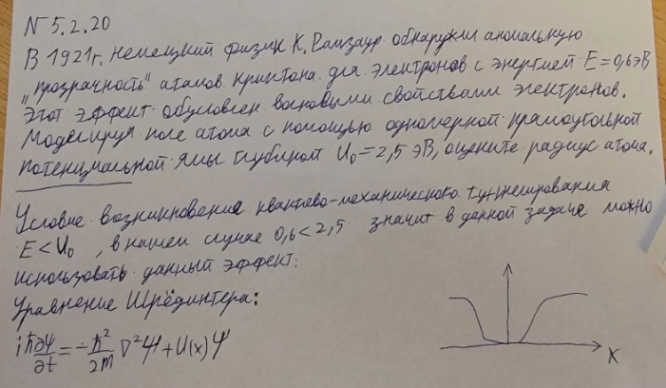 N 5.2.20
В 1921г. немецкий физик К. Рамзауэр обнаружил аномальную
"прозрачность" атомов криптона для электронов с энергией E = 0,6 эВ
Этот эффект обусловлен волновыми свойствами электронов.
Моделируя поле атома с помощью одномерной прямоугольной
потенциальной ямы глубиной U₀ = 2,5 эВ, оцените радиус атома.
Условие возникновения квантово-механического туннелирования
E < U₀ , в нашем случае 0,6 < 2,5 значит в данной задаче можно
использовать данный эффект:
Уравнение Шрёдингера:
iℏ ∂ψ/∂t = -ℏ²/2m ∇²ψ + U(x)ψ
K